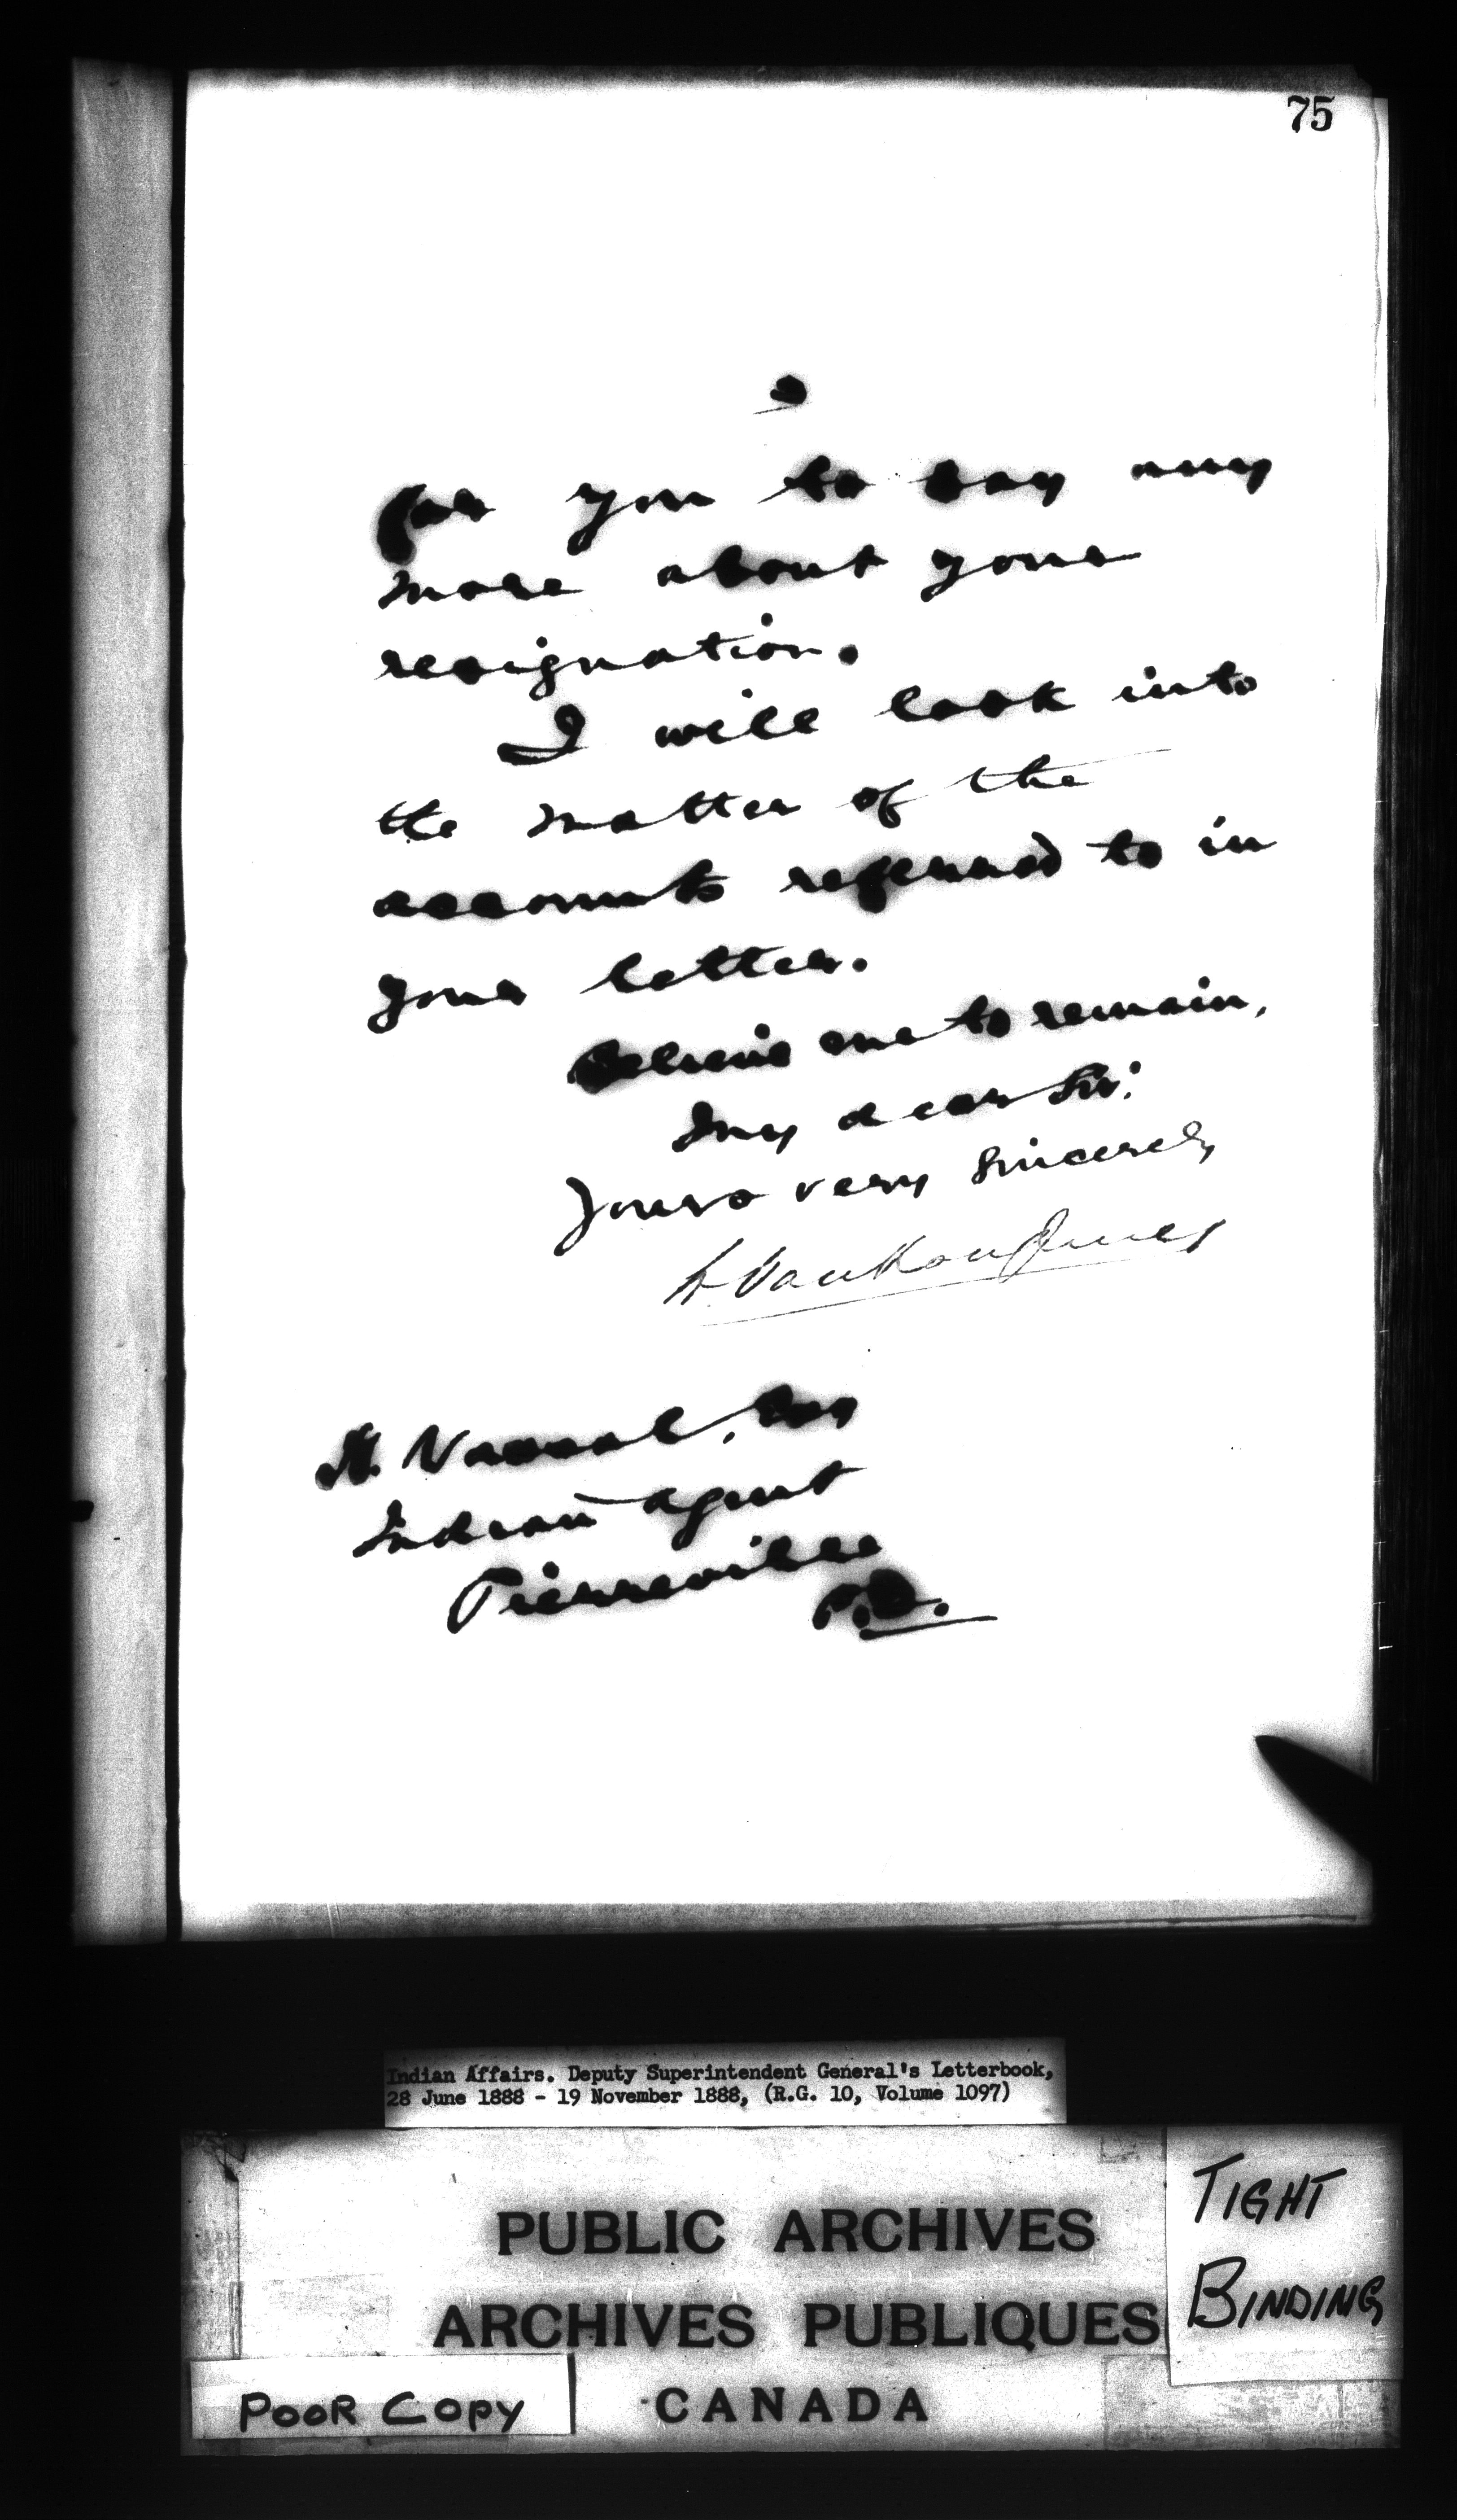 75
for you to say any
more about your
resignation.
I will look into
the matter of the
accounts referred to in
your letter.
Believe me to remain,
My dear Sir:
Yours very sincerely
L. VanKoughnet
H. Vassal, Esq
Indian Agent
Pierreville
P.Q.
Indian Affairs. Deputy Superintendent General's Letterbook,
28 June 1888 - 19 November 1888, (R.G. 10, Volume 1097)
PUBLIC ARCHIVES
ARCHIVES PUBLIQUES
CANADA
TIGHT
BINDING
POOR COPY